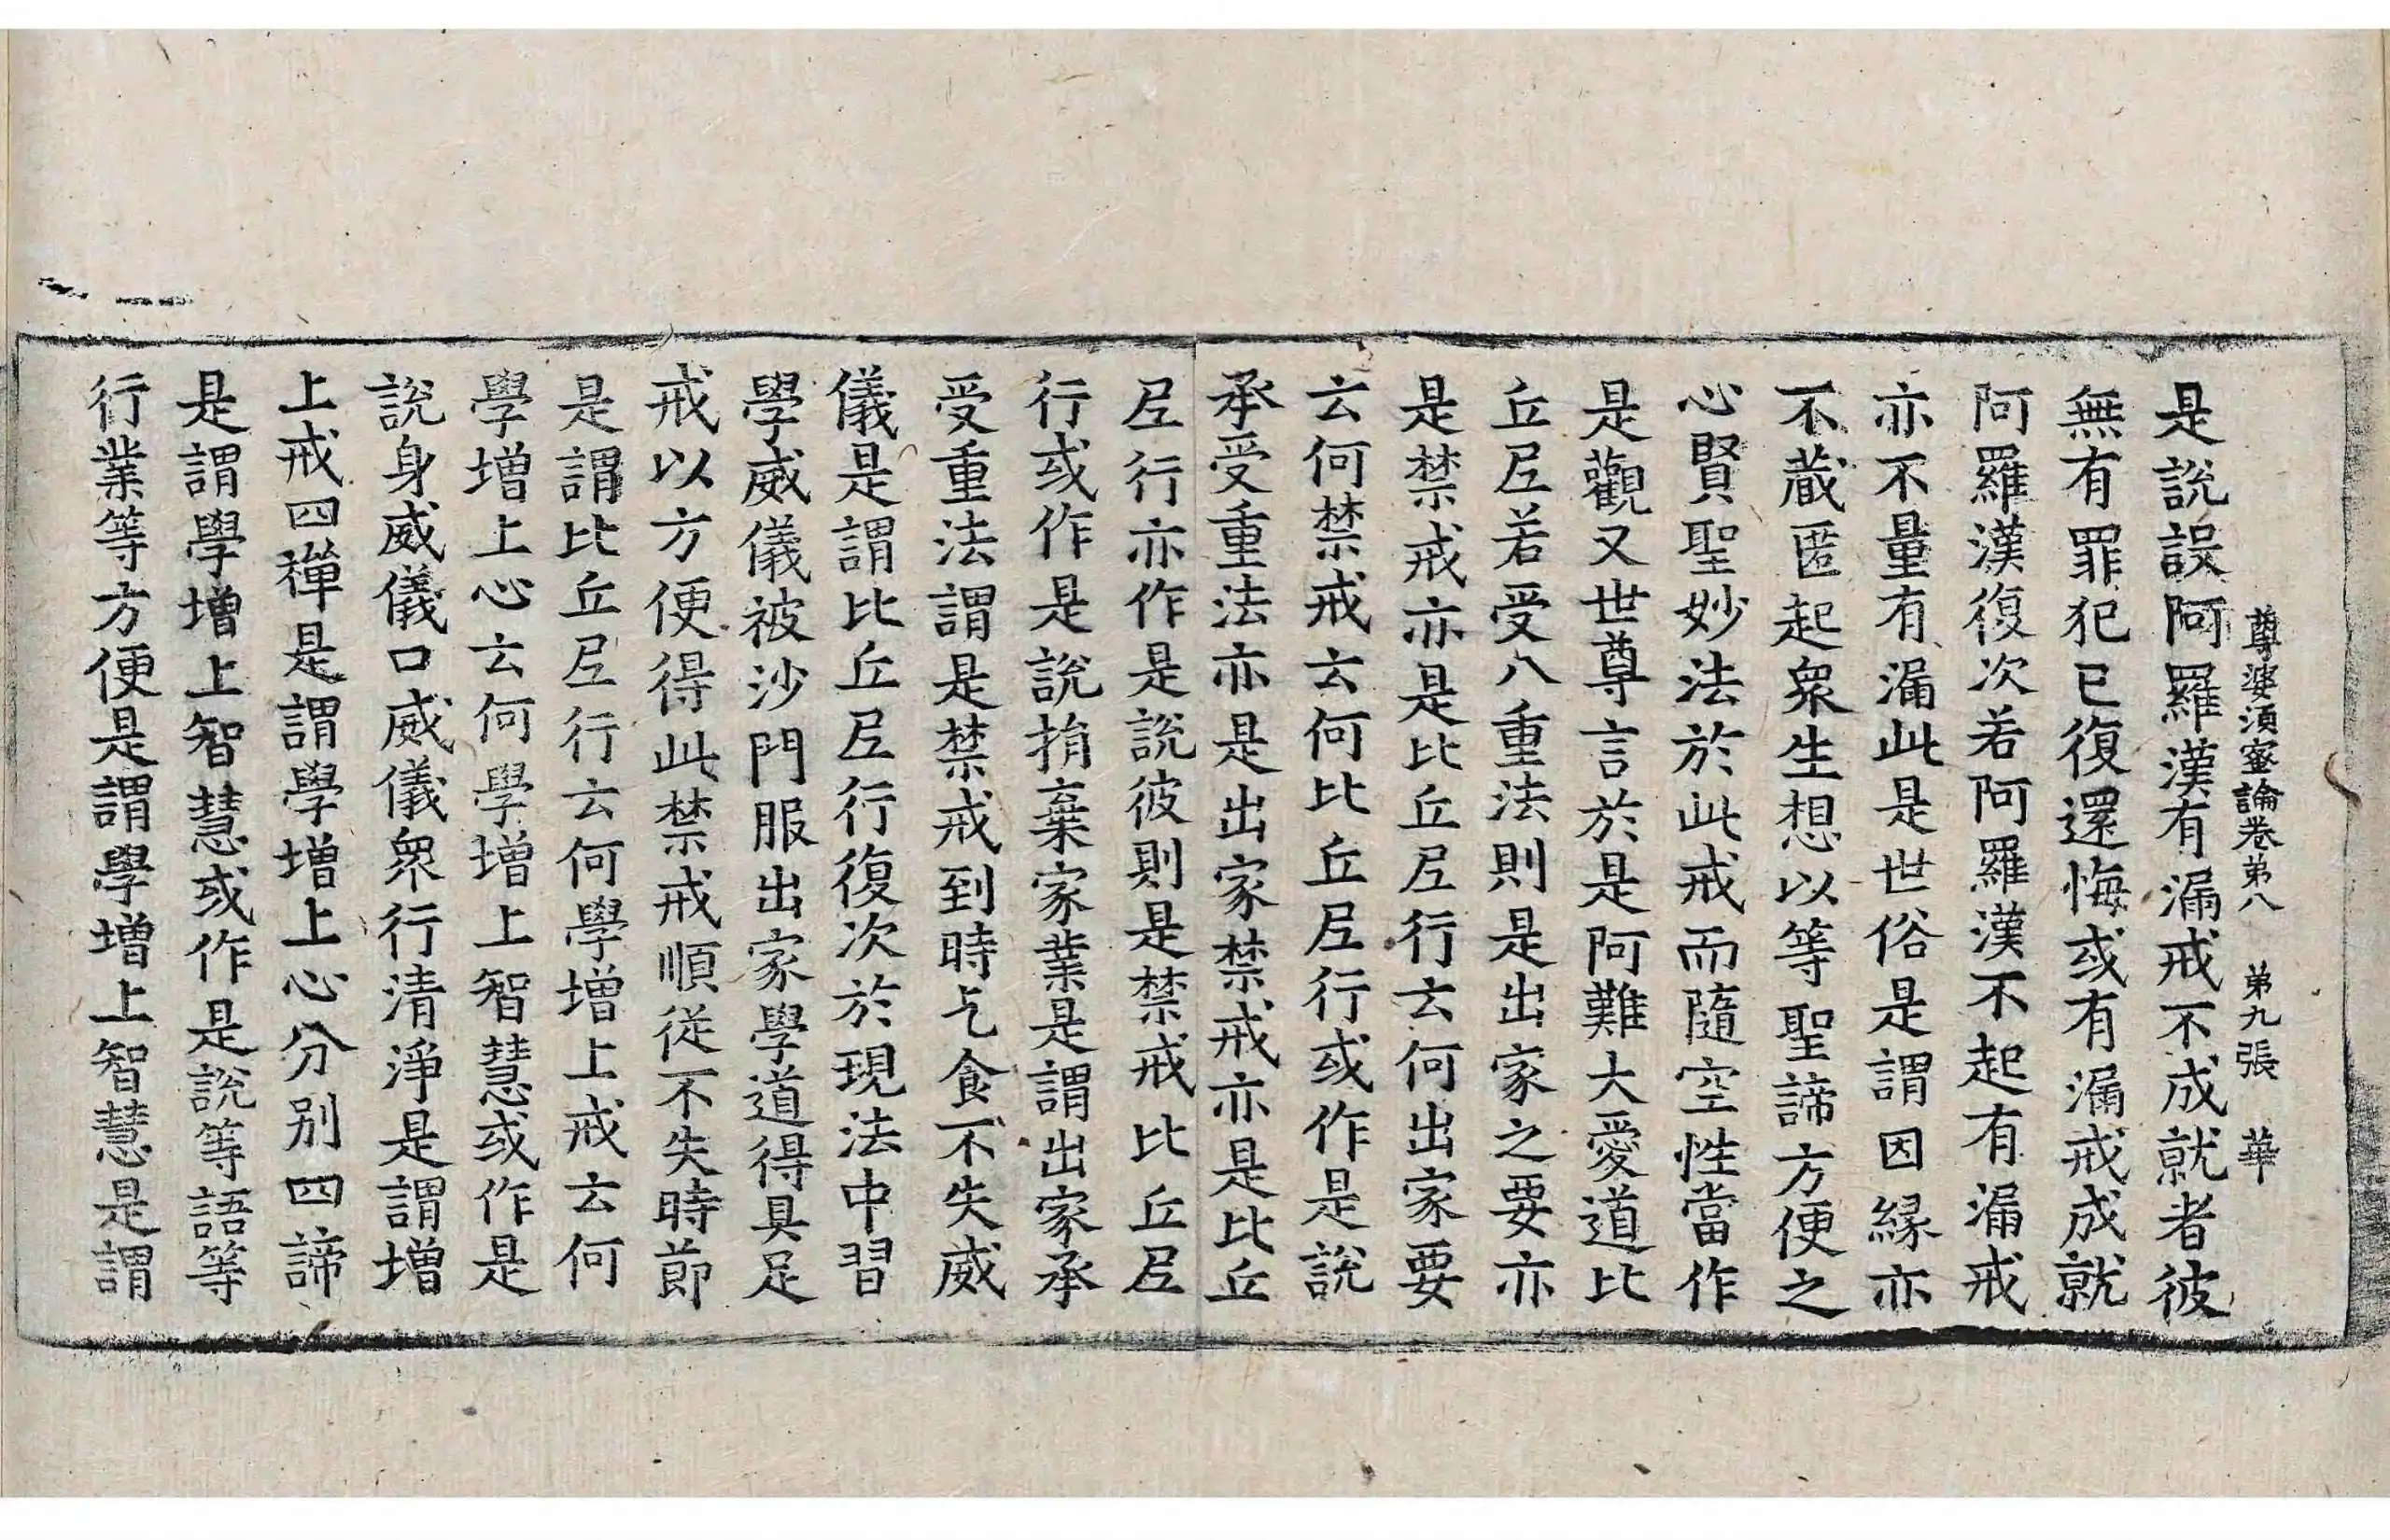 尊婆須蜜論卷第八 第九張 華
是說誤阿羅漢有漏戒不成就者彼
無有罪犯已復還悔或有漏戒成就
阿羅漢復次若阿羅漢不起有漏戒
亦不量有漏此是世俗是謂因緣亦
不蔵匿起衆生想以等聖諦方便之
心賢聖妙法於此戒而隨空性當作
是觀又世尊言於是阿難大愛道比
丘尼若受八重法則是出家之要亦
是禁戒亦是比丘尼行云何出家要
云何禁戒云何比丘尼行或作是說
承受重法亦是出家禁戒亦是比丘
尼行亦作是說彼則是禁戒比丘尼
行或作是說捐棄家業是謂出家承
受重法謂是禁戒到時乞食不失威
儀是謂比丘尼行復次於現法中習
學威儀被沙門服出家學道得具足
戒以方便得此禁戒順從不失時節
是謂比丘尼行云何學增上戒云何
學增上心云何學增上智慧或作是
說身威儀口威儀衆行清淨是謂增
上戒四禪是謂學增上心分别四諦
是謂學增上智慧或作是說等語等
行業等方便是謂學增上智慧是謂